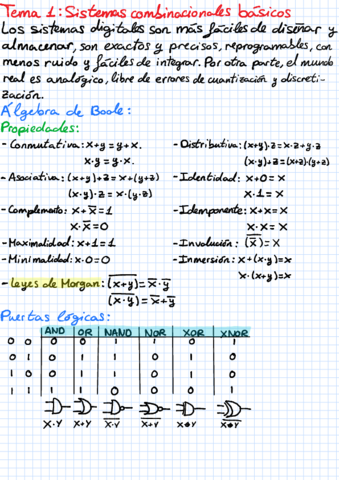 Tema 1: Sistemas combinacionales básicos
Los sistemas digitales son más fáciles de diseñar y
almacenar, son exactos y precisos, reprogramables, con
menos ruido y fáciles de integrar. Por otra parte, el mundo
real es analógico, libre de errores de cuantización y discreti-
zación.
Álgebra de Boole:
Propiedades:
- Conmutativa: x+y = y+x.
x·y = y·x.
- Asociativa: (x+y)+z = x+(y+z)
(x·y)·z = x·(y·z)
- Complemento: x+x̅=1
x·x̅=0
- Maximalidad: x+1=1
- Minimalidad: x·0=0
- Distributiva: (x+y)·z=x·z+y·z
(x·y)+z=(x+z)·(y+z)
- Identidad: x+0=x
x·1=x
- Idemponente: x+x=x
x·x=x
- Involución: (x̅)̅=x
- Inmersión: x+(x·y)=x
x·(x+y)=x
- Leyes de Morgan: (x+y)̅=x̅·y̅
(x·y)̅=x̅+y̅
Puertas lógicas:
AND OR NAND NOR XOR XNOR
0 0 0 0 1 1 0 1
0 1 0 1 1 0 1 0
1 0 0 1 1 0 1 0
1 1 1 1 0 0 0 1
X·Y X+Y X·Y̅ X+Y̅ X⊕Y X⊕Y̅